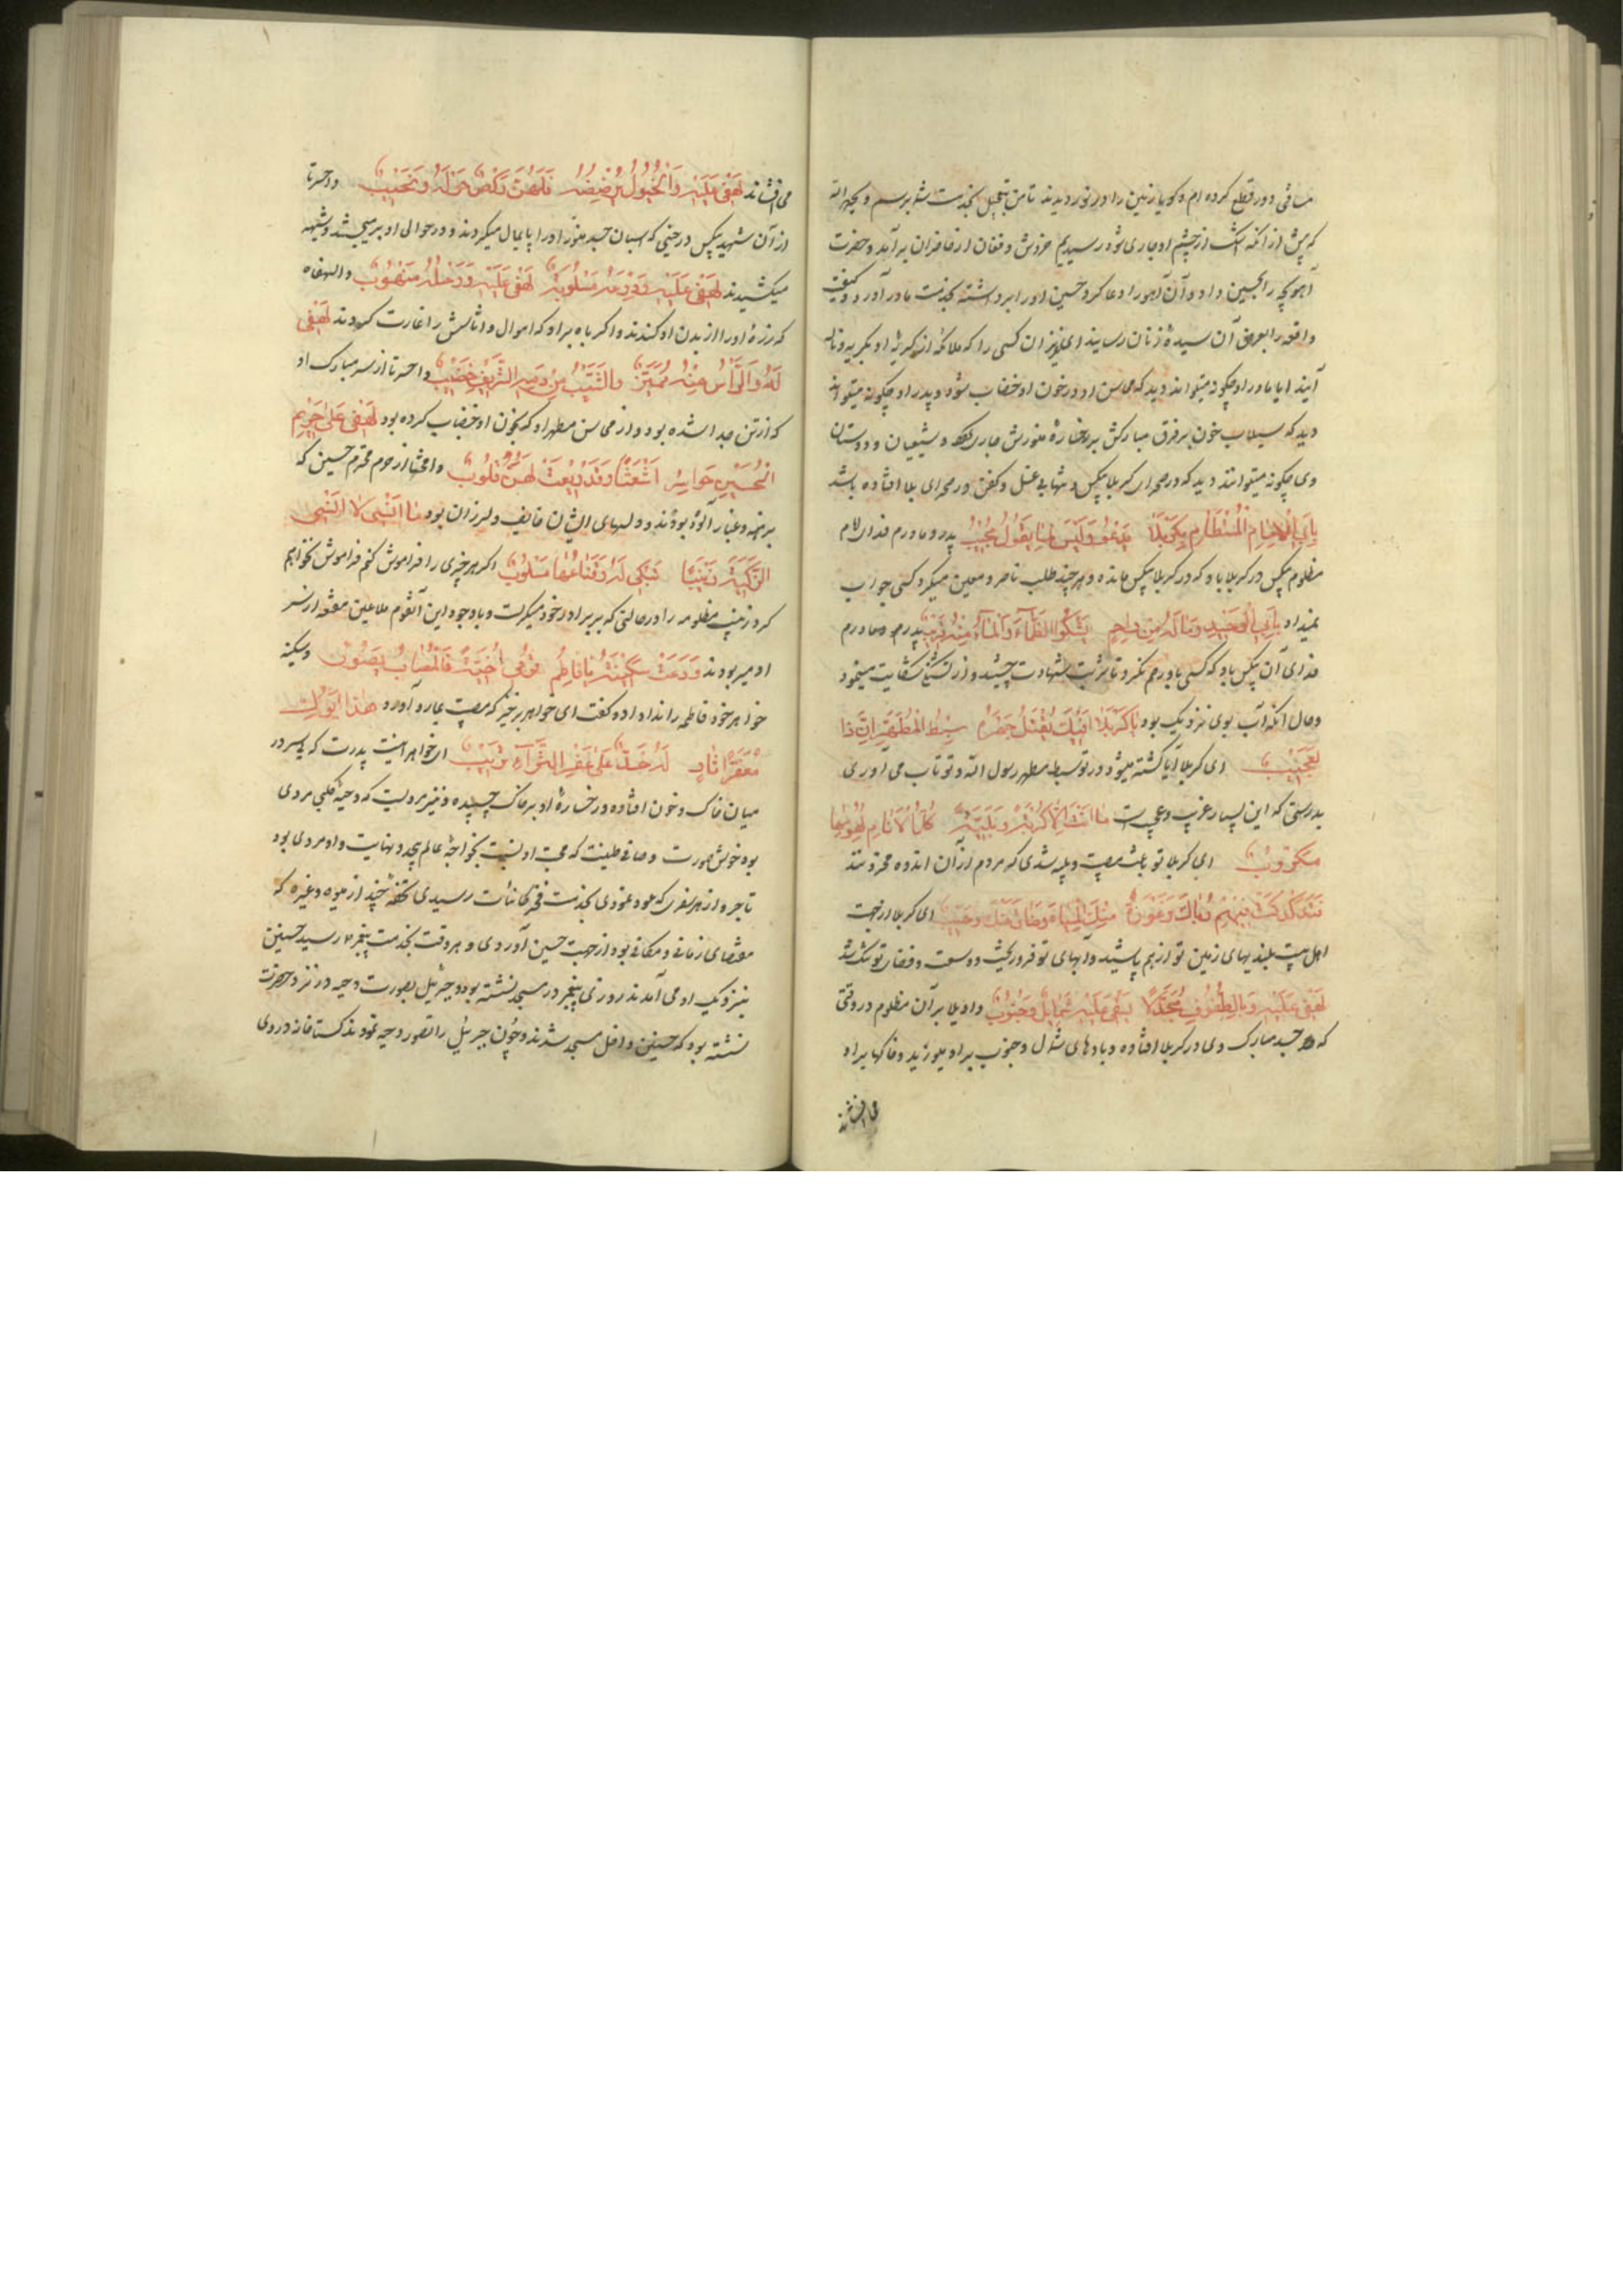 مسافتی دور قطع کرده ام و گویا زمین را در نوردیدند تا من بتعجیل بخدمت شما برسم و بحمد الله
که پیش از آنکه اشک از چشم او جاری شود رسیدیم خروش و فغان از حاضران برآمد و حضرت
آهو بچه را بحسین داد و آن آهو را دعا کرد حسین او را برداشته بخدمت مادر آورد و کیفیت
واقعه را بعرض آن سیده زنان رسانید ای عزیزان کسی را که ملائکه از گریه او بگریه و ناله
آیند ایا مادر او چگونه میتواند دید که محاسن او در خون او خضاب شود و پدر او چگونه میتواند
دید که سیلاب خون بر فرق مبارکش بر رخساره منورش جاری گردد و شیعیان و دوستان
وی چگونه میتوانند دید که در صحرای کربلا بیکس و تنها بی غسل و کفن در صحرای بلا افتاده باشد
بابی الامام المستضام بکربلا یدعو و لیس لما یقول مجیب پدر و مادرم فدای امام
مظلوم بیکس در کربلا باد که در کربلا بیکس مانده و هر چند طلب ناصر و معین میکرد کسی جواب
نمیداد بابی الوحید و ماله من راحم یشکو الظماء و الماء منه قریب پدرم و مادرم
فدای آن بیکس باد که کسی باو رحم نکرد تا شربت شهادت چشید و از تشنگی شکایت مینمود
و حال آنکه آب بوی نزدیک بود یا کربلا افیک یقتل جهرة سبط المطهر ان ذا
لعجیب ای کربلا آیا کشته میشود در تو سبط مطهر رسول الله و تو تاب می آوری
بدرستی که این بسیار غریب و عجیب است ما انت الا کربة و بلیة کل الانام لهولها
مکروب ای کربلا تو باعث مصیبت و بلیه شدی که مردم از آن اندوه محزونند
ای کربلا از جهت
اهل بیت بلندیهای زمین تو از هم پاشید و آبهای تو فرو رفت و وسعت و فضای تو تنگ شد
لهفی علیه و بالطفوف مجدلا تسفی علیه شمایل و جنوب واویلا بر آن مظلوم در وقتی
که جسد مبارک وی در کربلا افتاده و بادهای شمال و جنوب بر او میوزید و خاکها بر او
می افشاند
می افشاند لهفی علیه و الخیول ترضضه فلهن رکض حوله و نحیب واحسرتا
از آن شهید بیکس در حینی که اسبان جسد منور او را پایمال میکردند و در حوالی او بر میجستند و شیهه
میکشیدند لهفی علیه و درعه مسلوبة لهفی علیه و رحله منهوب والهفاه
که زره او را از بدن او کندند و اکرباه بر او که اموال و اثاثش را غارت کردند لهفی
له و الراس منه ممیز و الشیب من دمه الشریف خضیب واحسرتا از سر مبارک او
که از تن جدا شده بود و از محاسن مطهر او که بخون او خضاب کرده بود لهفی علی حریم
الحسین حواسرا شعثا و قد ریعت لهن قلوب وامحنتا از حرم محترم حسین که
برهنه و غبار آلوده بودند و دلهای ایشان خایف و لرزان بود ما انسی لا انسی
الزکیة زینبا تبکی له و قناعها مسلوب اگر هر چیزی را فراموش کنم فراموش نخواهم
کرد زینب مظلومه را در حالتی که بر برادر خود میگریست و با وجود این آنقوم ملاعین مقنعه از سر
او میربودند و دعت سکینة یا فاطم قومی اخیة فالمصاب یصوب و سکینه
خواهر خود فاطمه را ندا داد و گفت ای خواهر برخیز که مصیبت بما رو آورد هذا ابوک
معفرا ثاو له خد علی عفر الثراء تریب ای خواهر اینست پدرت که پسر در
میان خاک و خون افتاده و رخساره او بر خاک چسپیده و نیز مرویست که دحیه کلبی مردی
بود خوش صورت و صافی طینت که محبت او نسبت بخواجه عالم بیحد و نهایت و او مردی بود
تاجر و از هر سفری که عود نمودی بخدمت فخر کائنات رسیدی تحفه چند از میوه و غیره که
مقتضای زمانی و مکانی بود از جهت حسین آوردی و هر وقت بخدمت پیغمبر رسید حسنین
بنزدیک او می آمدند روزی پیغمبر در مسجد نشسته بود و جبرئیل بصورت دحیه در نزد حضرت
نشسته بود که حسنین داخل مسجد شدند و چون جبرئیل را تصور دحیه نمودند گستاخانه در روی